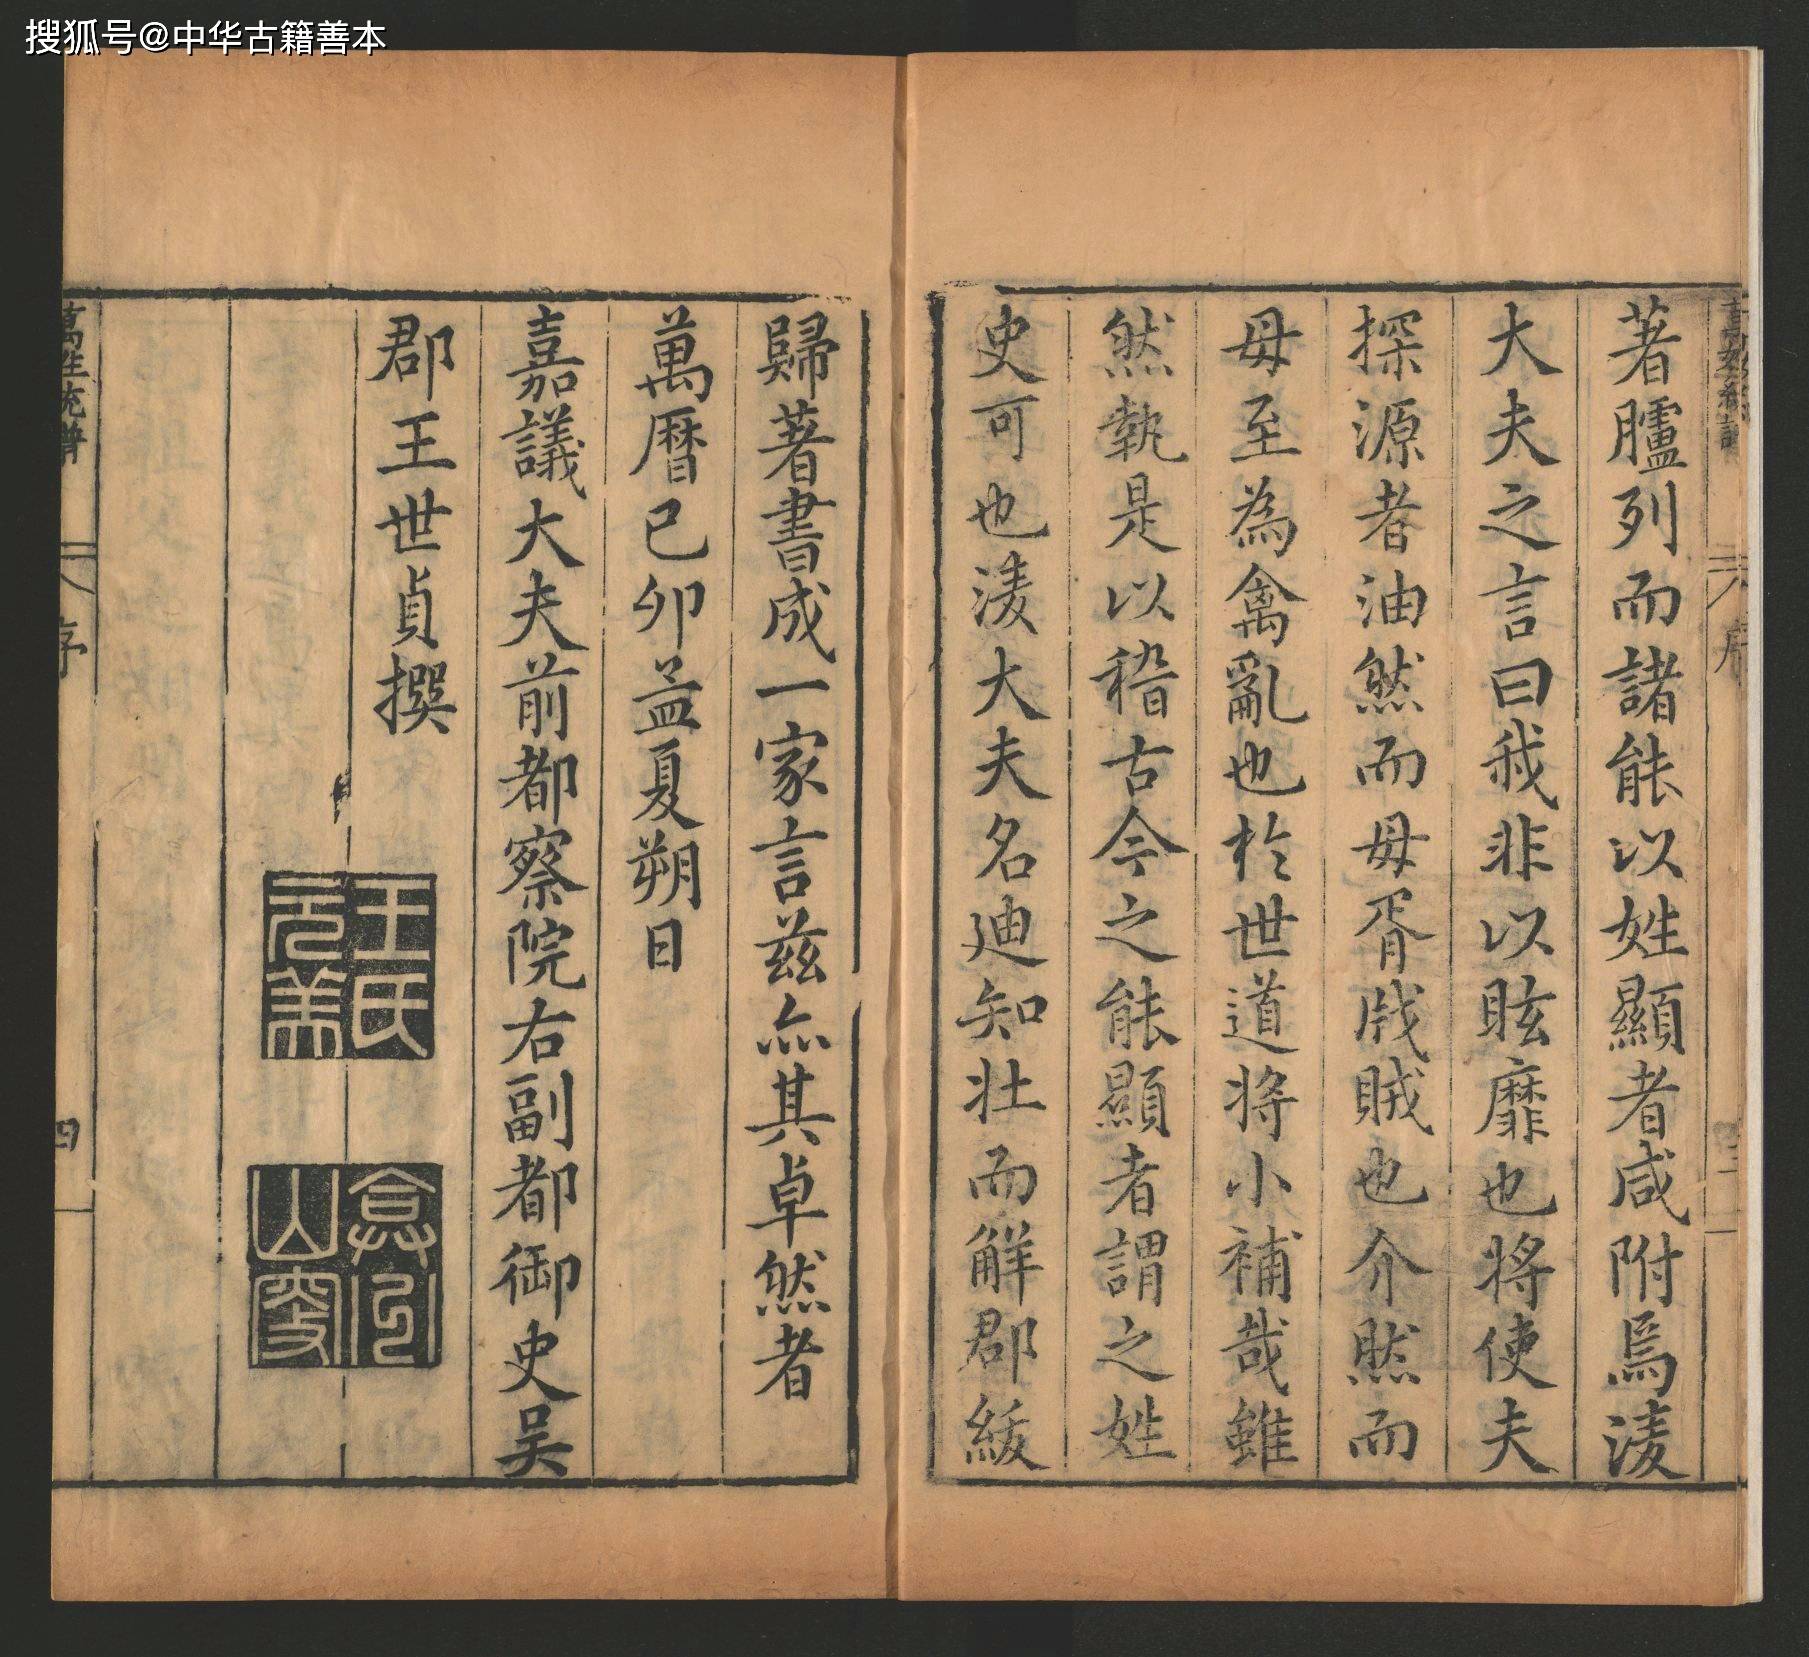 搜狐号@中华古籍善本
萬姓統譜 序
著臚列而諸能以姓顯者咸附焉淩
大夫之言曰我非以眩靡也將使夫
探源者油然而毋胥戕賊也介然而
毋至為禽亂也於世道將小補哉雖
然執是以稽古今之能顯者謂之姓
史可也淩大夫名迪知壯而解郡綬
歸著書成一家言茲亦其卓然者
萬曆己卯孟夏朔日
嘉議大夫前都察院右副都御史吳
郡王世貞撰
王氏元美
萬姓統譜 序 四